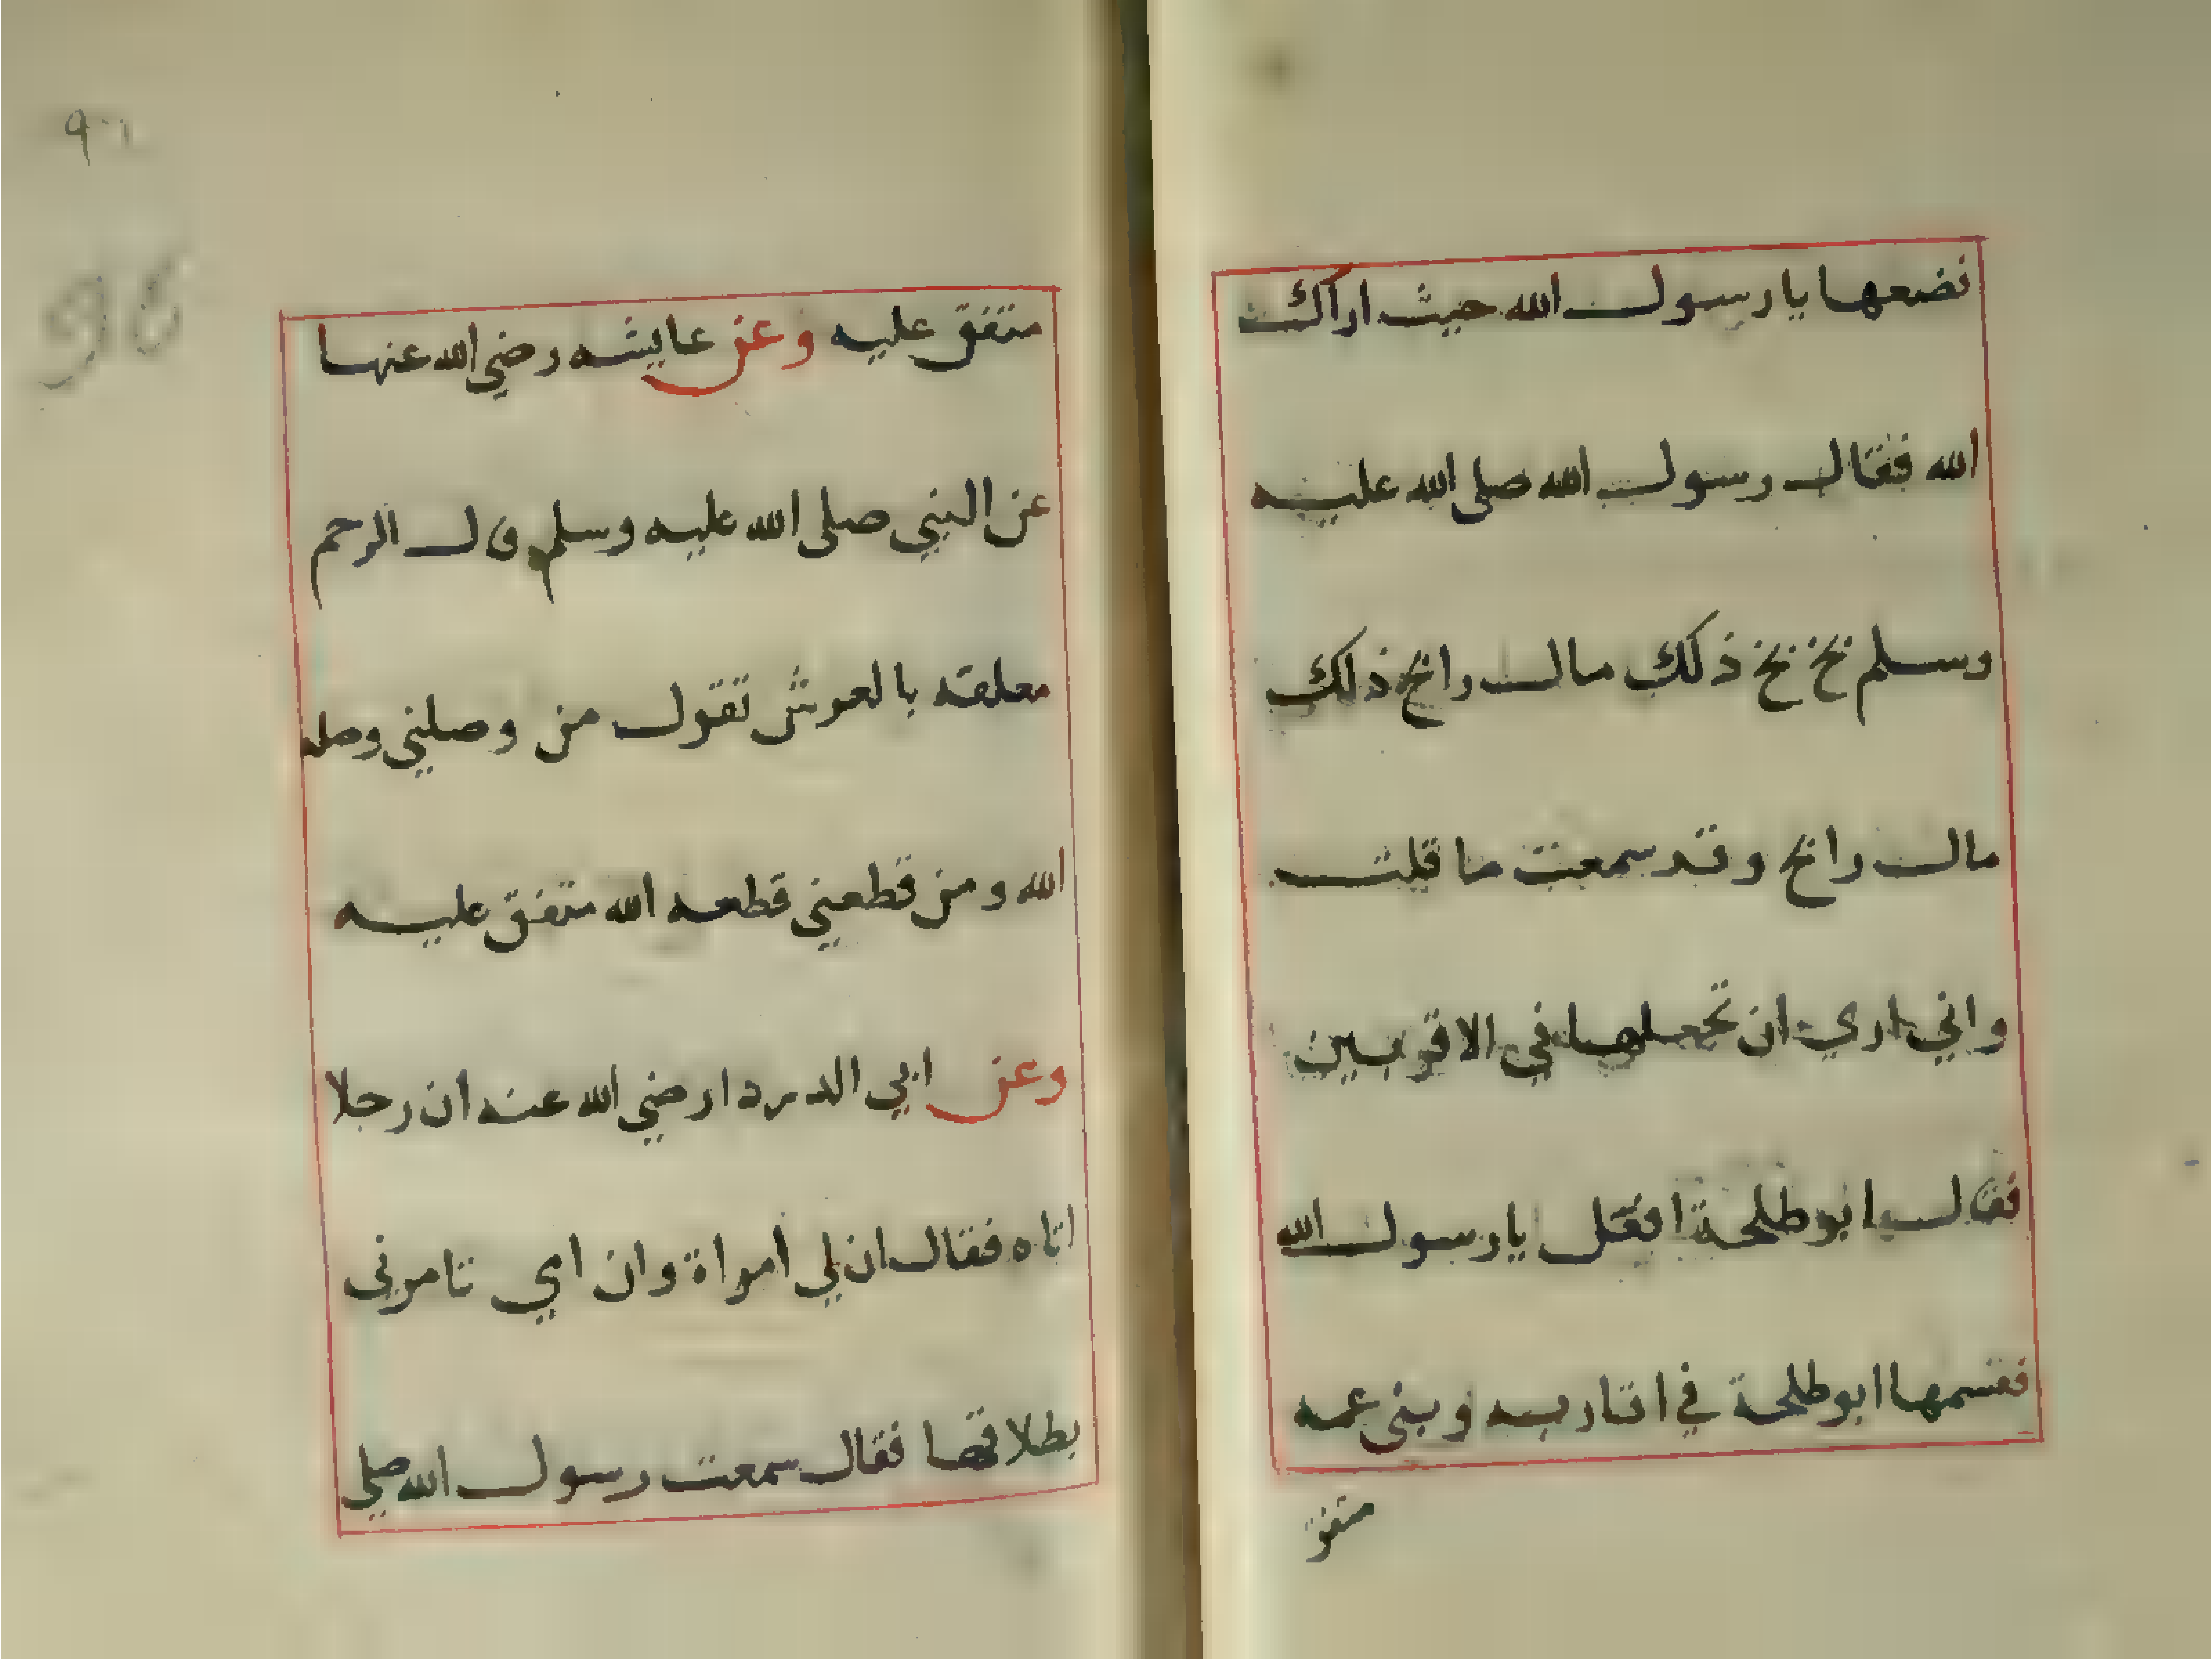 نضعها يا رسول الله حيث اراك
الله فقال رسول الله صلى الله عليه
وسلم بخ بخ ذلك مال رابح ذلك
مال رابح وقد سمعت ما قلت
واني اري ان تجعلها في الاقربين
فقال ابو طلحة افعل يا رسول الله
فقسمها ابو طلحة في اقاربه وبني عمه
متفق
متفق عليه وعن عايشه رضي الله عنها
عن النبي صلى الله عليه وسلم قال الرحم
معلقه بالعرش تقول من وصلني وصله
الله ومن قطعني قطعه الله متفق عليه
وعن ابي الدردا رضي الله عنه ان رجلا
اتاه فقال ان لي امراة وان امي تامرني
بطلاقها فقال سمعت رسول الله صلي
96